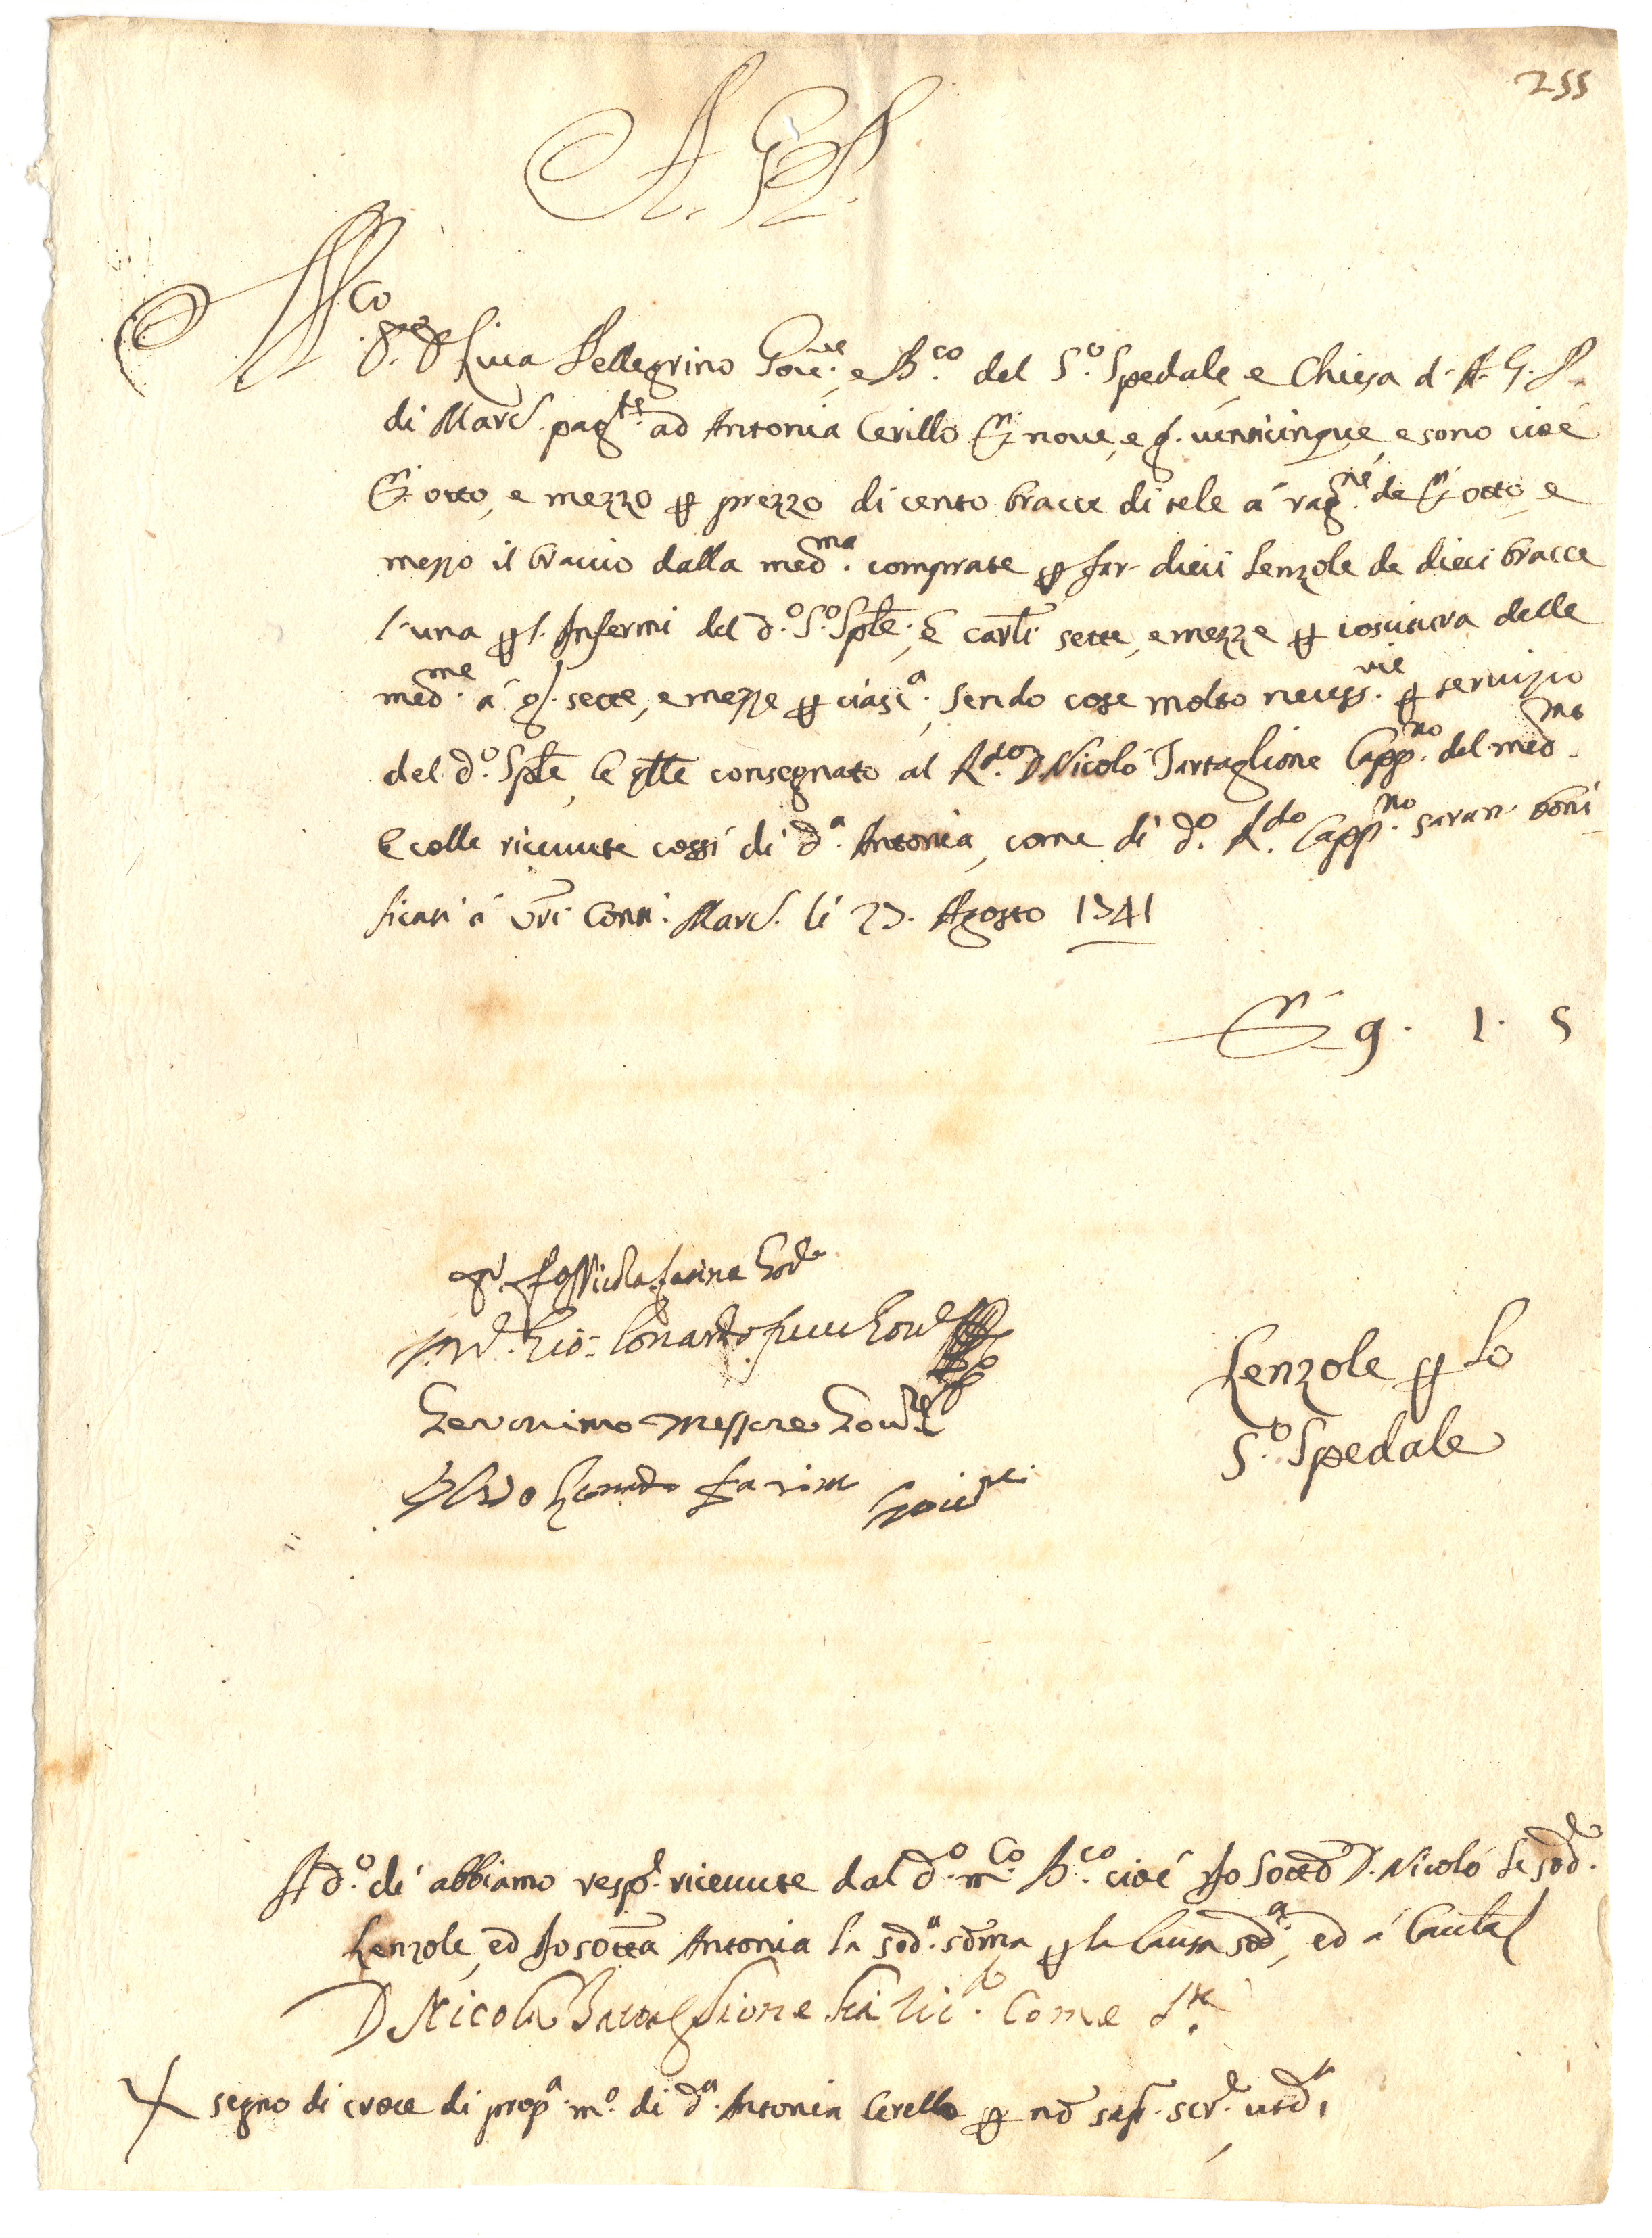 255
A. G. P.
M.co S.re Luca Pellegrino Gov.re, e B.co del S.to Spedale, e Chiesa d. A. G. P.
di Marc. pag.te ad Antonia Cerillo D.ti nove, e g. venticinque, e sono cioè
D.ti otto, e mezzo per prezzo di cento bracce di tele à rag.ne de g.ti otto e
mezzo il braccio dalla med.ma comprate per far dieci Lenzole de dieci bracce
l'una per l'Infermi del d.o S.to Sp.le, e carl. sette, e mezze per cositura delle
med.me à g. sette, e mezze per ciasc.a, sendo cose molto necess.rie per servizio
del d.o Sp.le, le q.le consegnato al R.do D. Nicolò Tartaglione Capp.no del med.mo
E colle ricevute cossi di d.a Antonia, come di d.o R.do Capp.no saran boni
ficati à v.ri Conti. Marc. li 23. Agosto 1741
D.ti 9. 1. 5
Nicola Farina Gov.re
Gio: Lonardo Gov.re
Geronimo Messore Gov.re
Lenzole per lo
Farina Gov.re
S.to Spedale
A d.o dì abbiamo resp.e ricevute dal d.o m.co B.co cioè Io sotto D. Nicolò le sod.e
Lenzole, ed Io sotta Antonia la sod.a somma per la causa sod.a, ed à cautela
D. Nicola Tartaglione ho ric.to come s.a
+ segno di croce di prop.a m.o di d.a Antonia Cerello per non sap. scr.e, ut s.a